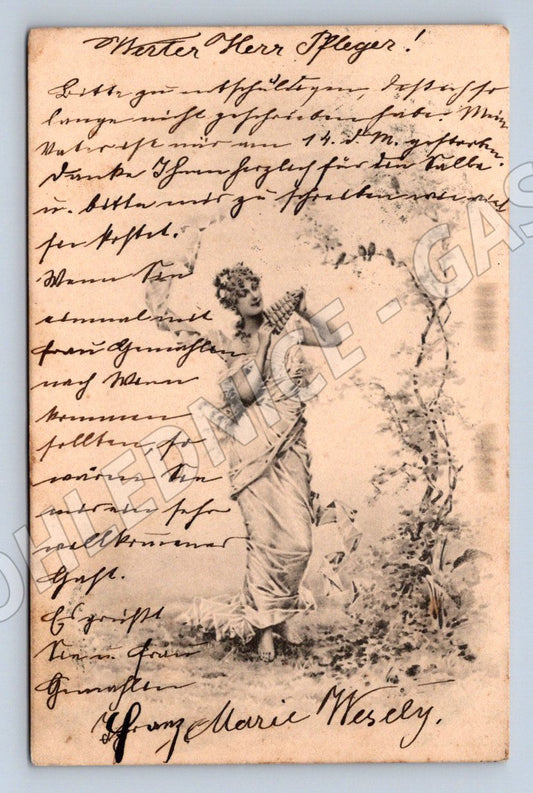 Werter Herr Pfleger!
Bitte zu entschuldigen, daß ich so
lange nicht geschrieben habe. Mein
Vater ist mir am 14. d. M. gestorben.
Danke Ihnen herzlich für die Salbe
u. bitte mir zu schreiben wie viel
sie kostet.
Wenn Sie
einmal mit
Frau Gemahlin
nach Wien
kommen
sollten, so
wären Sie
mir ein sehr
willkommener
Gast.
Es grüßt
Sie u. Frau
Gemahlin
Franz Marie Wesely.
POHLEDNICE - GAS